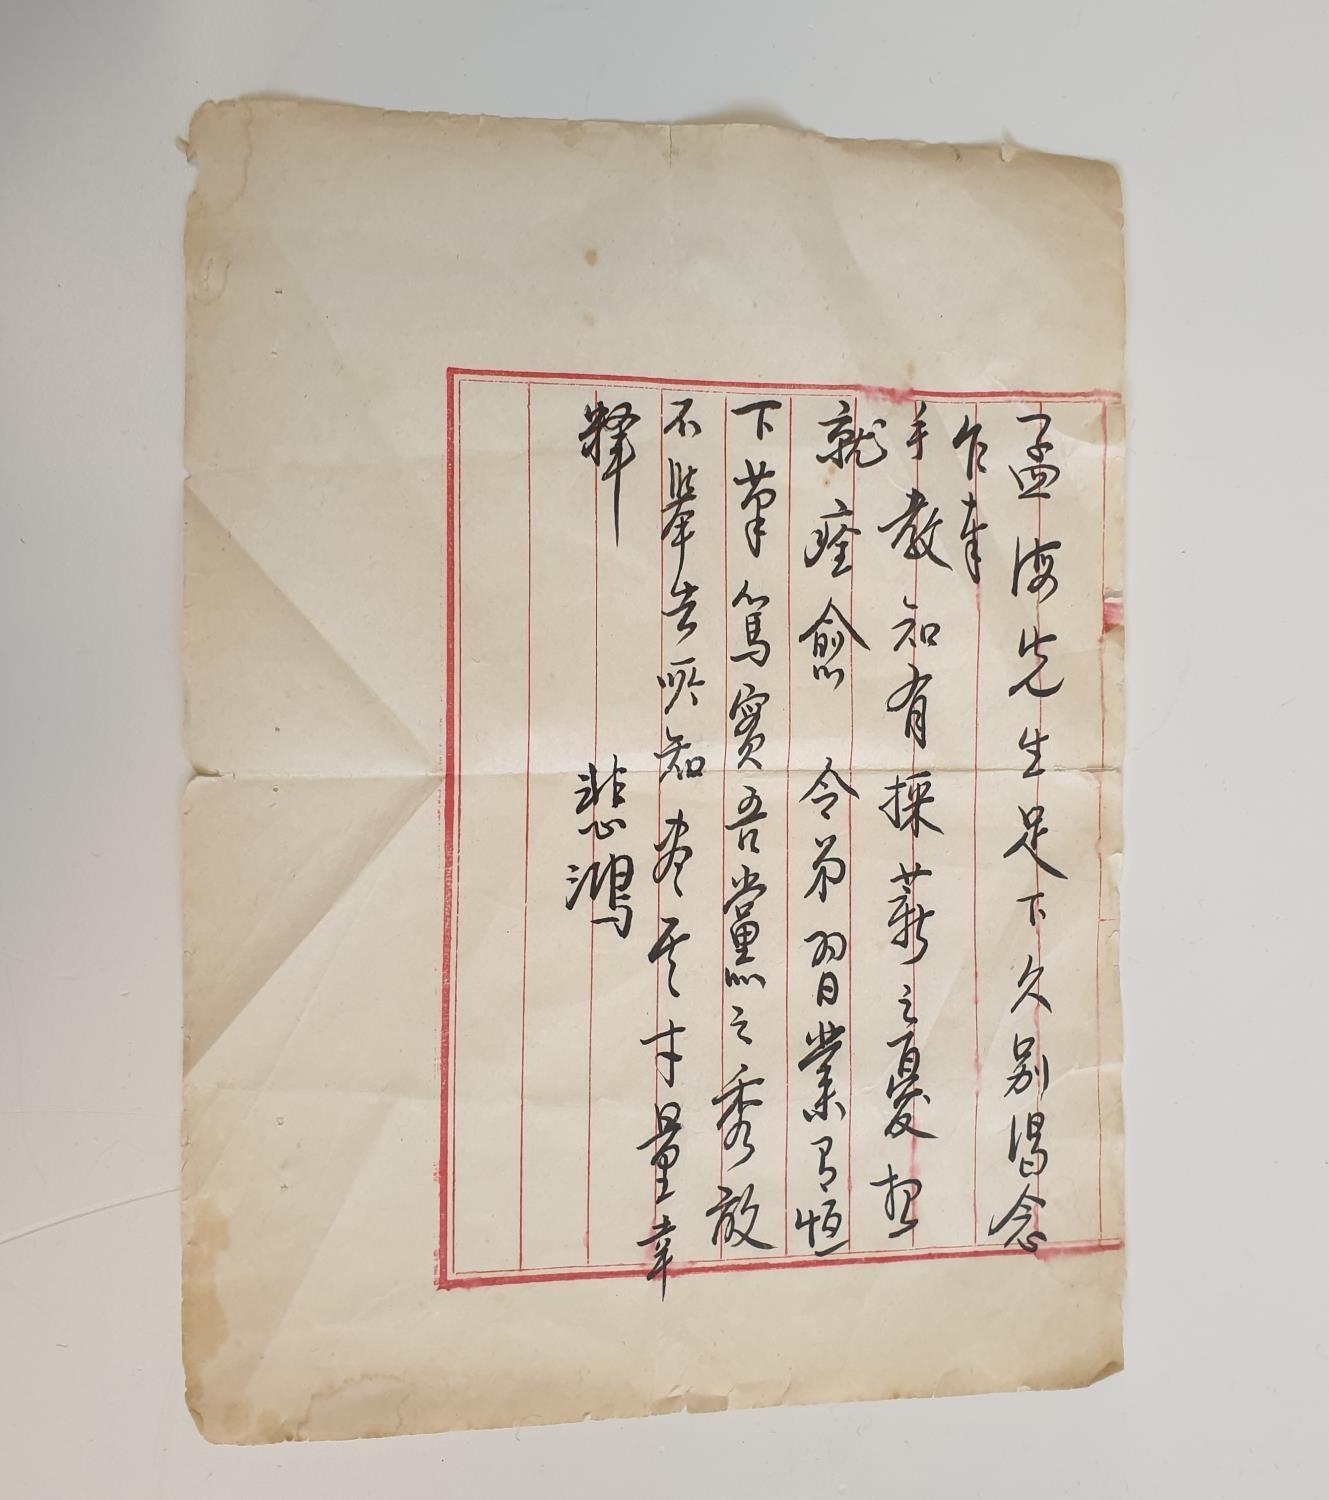 孟海先生足下久别渴念
乍奉
手教知有採薪之憂想
就痊愈 令弟習業有恒
下筆篤實吾黨之秀敢
不舉吾所知盡其才量幸
釋
悲鴻